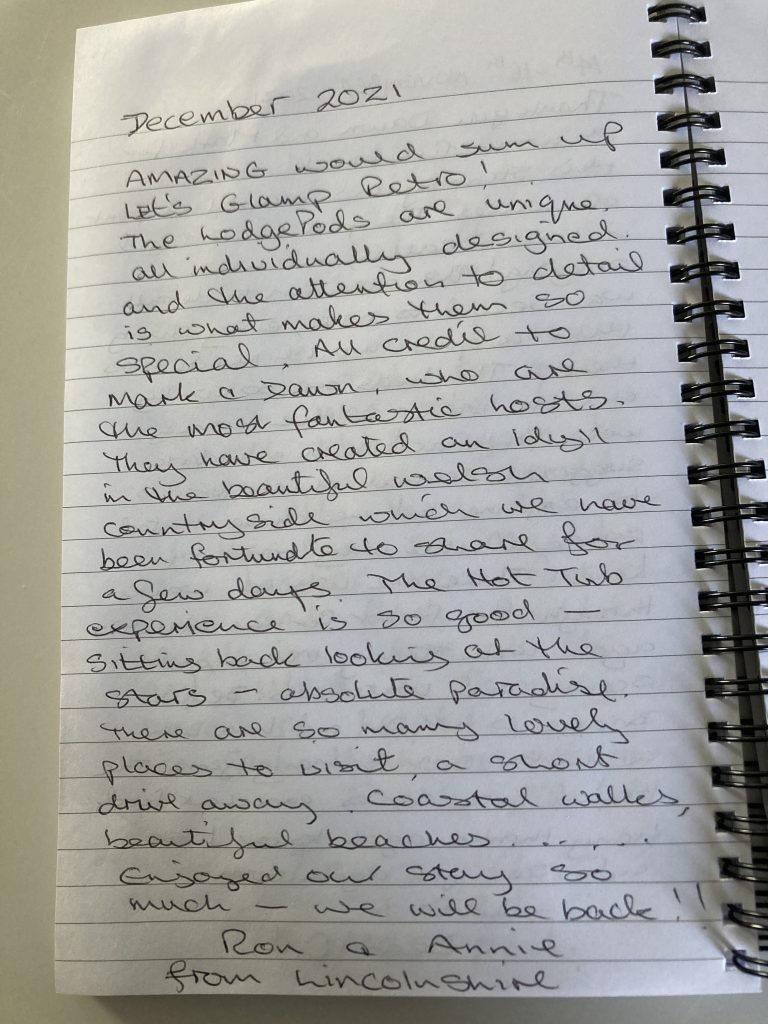 December 2021
AMAZING would sum up
Let's Glamp Retro!
The LodgePods are unique,
all individually designed.
and the attention to detail
is what makes them so
special. All credit to
Mark & Dawn, who are
the most fantastic hosts.
They have created an idyll
in the beautiful welsh
countryside which we have
been fortunate to share for
a few days. The Hot Tub
experience is so good —
sitting back looking at the
stars — absolute paradise.
There are so many lovely
places to visit, a short
drive away. Coastal walks,
beautiful beaches......
Enjoyed our stay so
much — we will be back!!
Ron & Annie
from Lincolnshire